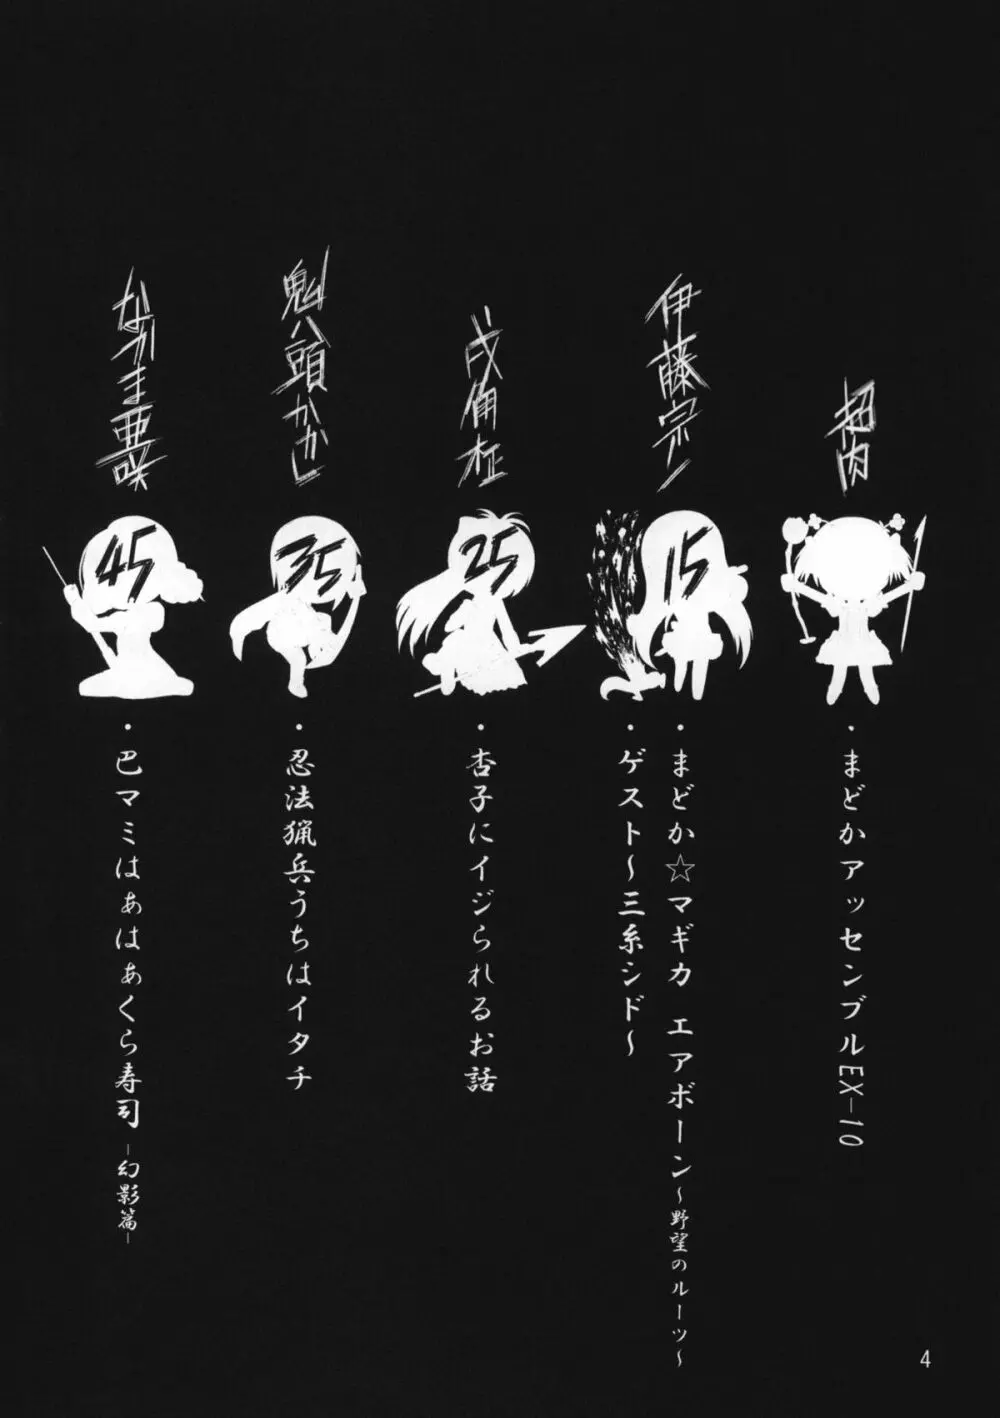 伊藤宗一
超肉
15
・まどかアッセンブルEX-10
・まどか☆マギカ エアボーン～野望のルーツ～
・ゲスト～三糸シド～
25
・杏子にイジられるお話
鬼八頭かかし
35
・忍法猟兵うちはイタチ
なかま亜咲
45
・巴マミはぁはぁくら寿司 -幻影篇-
4